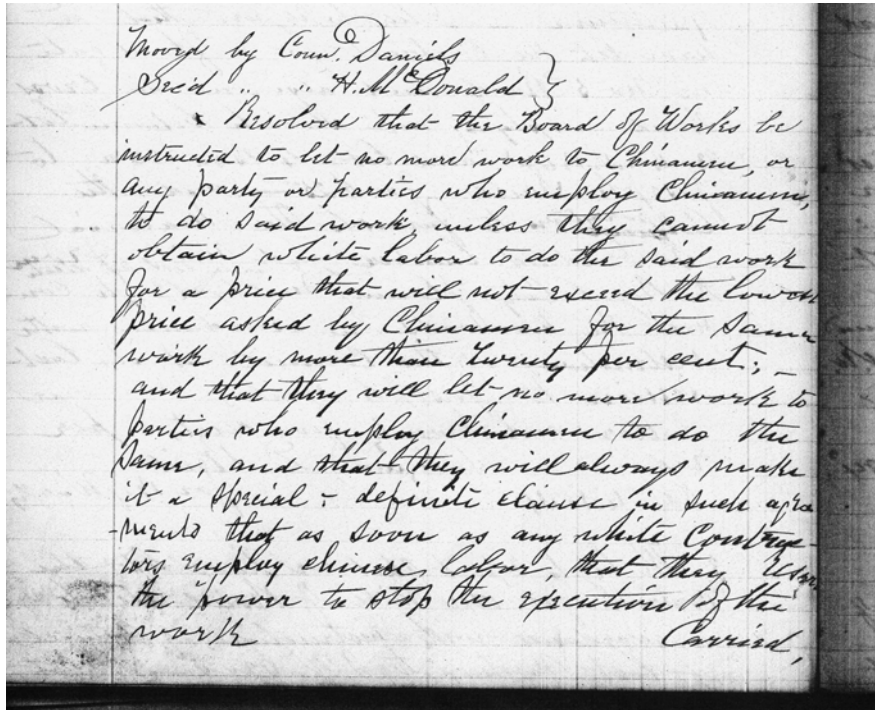 Moved by Coun. Daniels
Sec'd " " H. McDonald
Resolved that the Board of Works be
instructed to let no more work to Chinamen, or
any party or parties who employ Chinamen,
to do said work, unless they cannot
obtain white labor to do the said work
for a price that will not exceed the lowest
price asked by Chinamen for the same
work by more than twenty per cent; –
and that they will let no more work to
parties who employ Chinamen to do the
same, and that they will always make
it a special - definite clause in such agree
-ments that as soon as any white Contrac-
tors employ chinese labor, that they reserve
the power to stop the execution of the
work Carried,